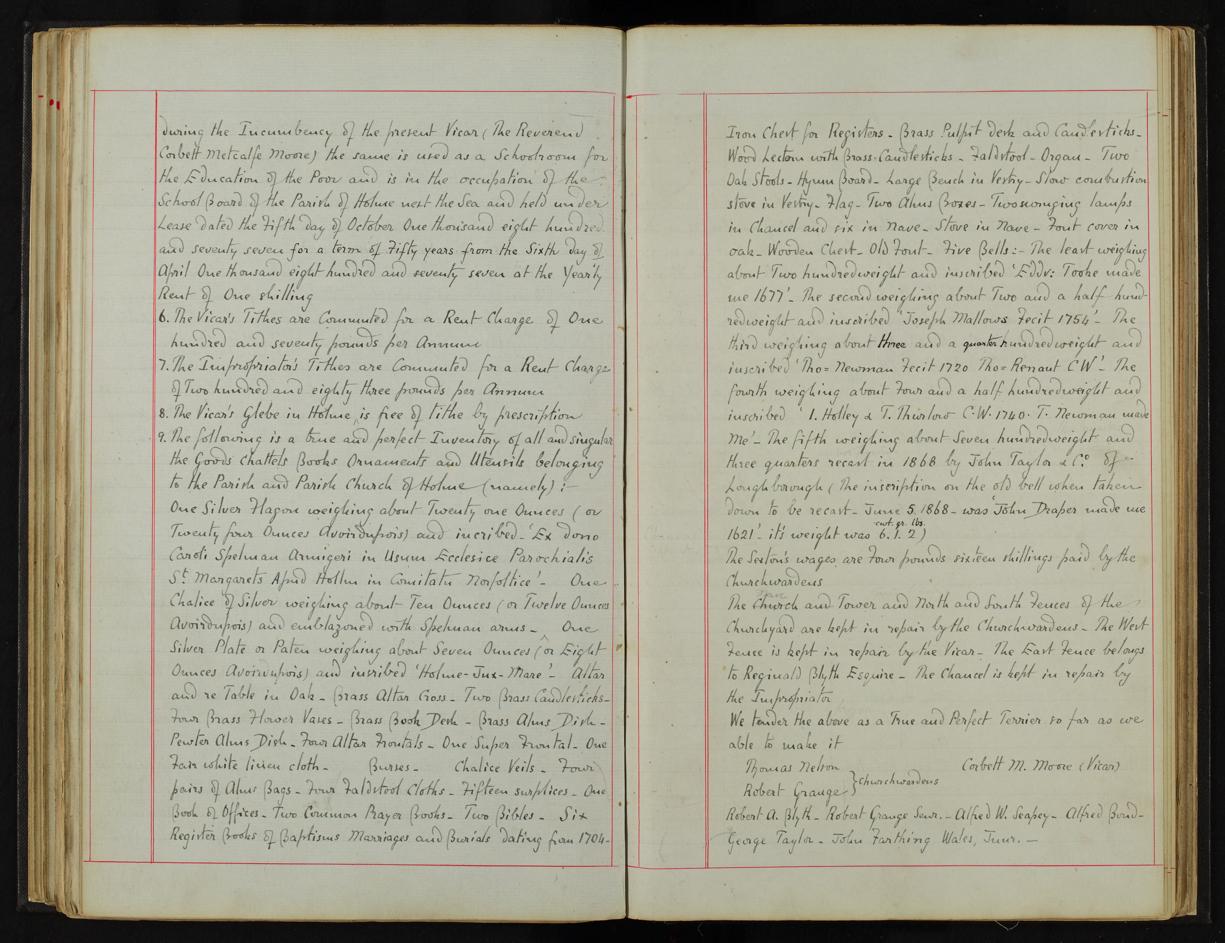 during the Incumbency of the present Vicar (The Reverend
Corbett Metcalfe Moore) the same is used as a Schoolroom for
the Education of the Poor and is in the occupation of the
School Board of the Parish of Holme next the Sea and held under
Lease dated the Fifth day of October One thousand eight hundred
and seventy seven for a term of Fifty years from the Sixth day of
April One thousand eight hundred and seventy seven at the Yearly
Rent of One shilling
6. The Vicar's Tithes are Commuted for a Rent Charge of One
hundred and seventy pounds per Annum
7. The Impropriator's Tithes are Commuted for a Rent Charge
of Two hundred and eighty three pounds per Annum
8. The Vicar's Glebe in Holme is free of tithe by prescription
9. The following is a true and perfect Inventory of all and singular
the Goods chattels Books Ornaments and Utensils belonging
to the Parish and Parish Church of Holme (namely) :-
One Silver Flagon weighing about Twenty one Ounces (or
Twenty four Ounces Avoirdupois) and incribed - 'Ex dono
Caroli Spelman Armigeri in Usum Ecclesice Parochialis
St. Margarets Apud Hollm in Comitatu Norfoltice' - One
Chalice of Silver weighing about Ten Ounces (or Twelve Ounces
Avoirdupois) and emblazoned with Spelman arms - One
Silver Plate or Paten weighing about Seven Ounces (or Eight
Ounces Avoirdupois) and incribed 'Holme-Jux-Mare' - Altar
and re Table in Oak - Brass Altar Cross - Two Brass Candlesticks -
Four Brass Flower Vases - Brass Book Desk - Brass Alms Dish -
Pewter Alms Dish - Four Altar Frontals - One Super Frontal - One
Fair white linen cloth - Burses - Chalice Veils - Four
pairs of Alms Bags - Four Faldstool Cloths - Fifteen surplices - One
Book of Offices - Two Common Prayer Books - Two Bibles - Six
Register Books of Baptisms Marriages and Burials dating from 1704 -
Iron Chest for Registers - Brass Pulpit desk and Candlesticks -
Wood Lectern with Brass Candlesticks - Faldstool - Organ - Two
Oak Stools - Hymn Board - Large Bench in Vestry - Slow combustion
stove in Vestry - Flag - Two Alms Boxes - Two swinging lamps
in Chancel and six in Nave - Stove in Nave - Font cover in
oak - Wooden Chest - Old Font - Five Bells :- The least weighing
about Two hundredweight and inscribed 'Eddr: Tooke made
me 1677' - The second weighing about Two and a half hund-
redweight and inscribed 'Joseph Mallows Fecit 1754' - The
third weighing about three and a quarter hundredweight and
inscribed 'Tho= Newman Fecit 1720 Tho= Renaut C W' - The
fourth weighing about Four and a half hundredweight and
inscribed ' I. Holley & T. Thurlow C. W. 1740. T. Newman made
Me' - The fifth weighing about Seven hundredweight and
three quarters recast in 1868 by John Taylor & Co. of
Loughborough (The inscription on the old bell when taken
down to be recast - June 5. 1868 - was 'John Draper made me
cwt. qr. lbs.
1621' it's weight was 6. 1. 2)
The Sexton's wages are Four pounds sixteen shillings paid by the
Churchwardens
The Church and Tower and North and South Fences of the
Churchyard are kept in repair by the Churchwardens - The West
Fence is kept in repair by the Vicar - The East Fence belongs
to Reginald Blyth Esquire - The Chancel is kept in repair by
the Impropriator
We tender the above as a True and Perfect Terrier so far as we
able to make it
Thomas Nelson Corbett M. Moore (Vicar)
Robert Grange } Churchwardens
Robert A. Blyth - Robert Grange Senr. - Alfred W. Seapey - Alfred Bond -
George Taylor - John Farthing Wales, Junr. -